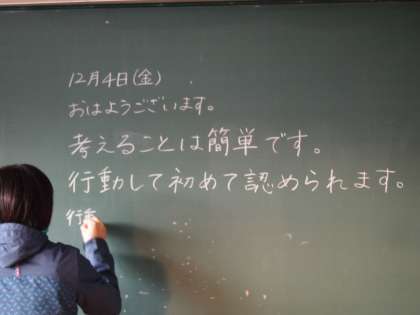 12月4日(金)
おはようございます。
考えることは簡単です。
行動して初めて認められます。
行動